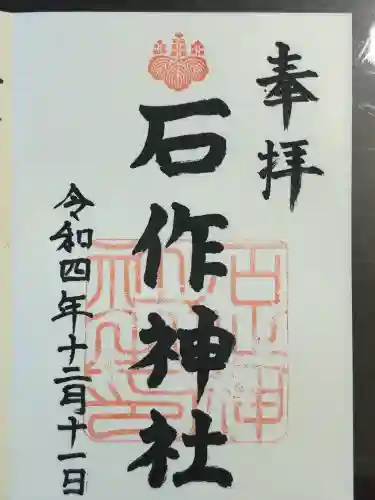 奉拝
石作神社
令和四年十二月十一日